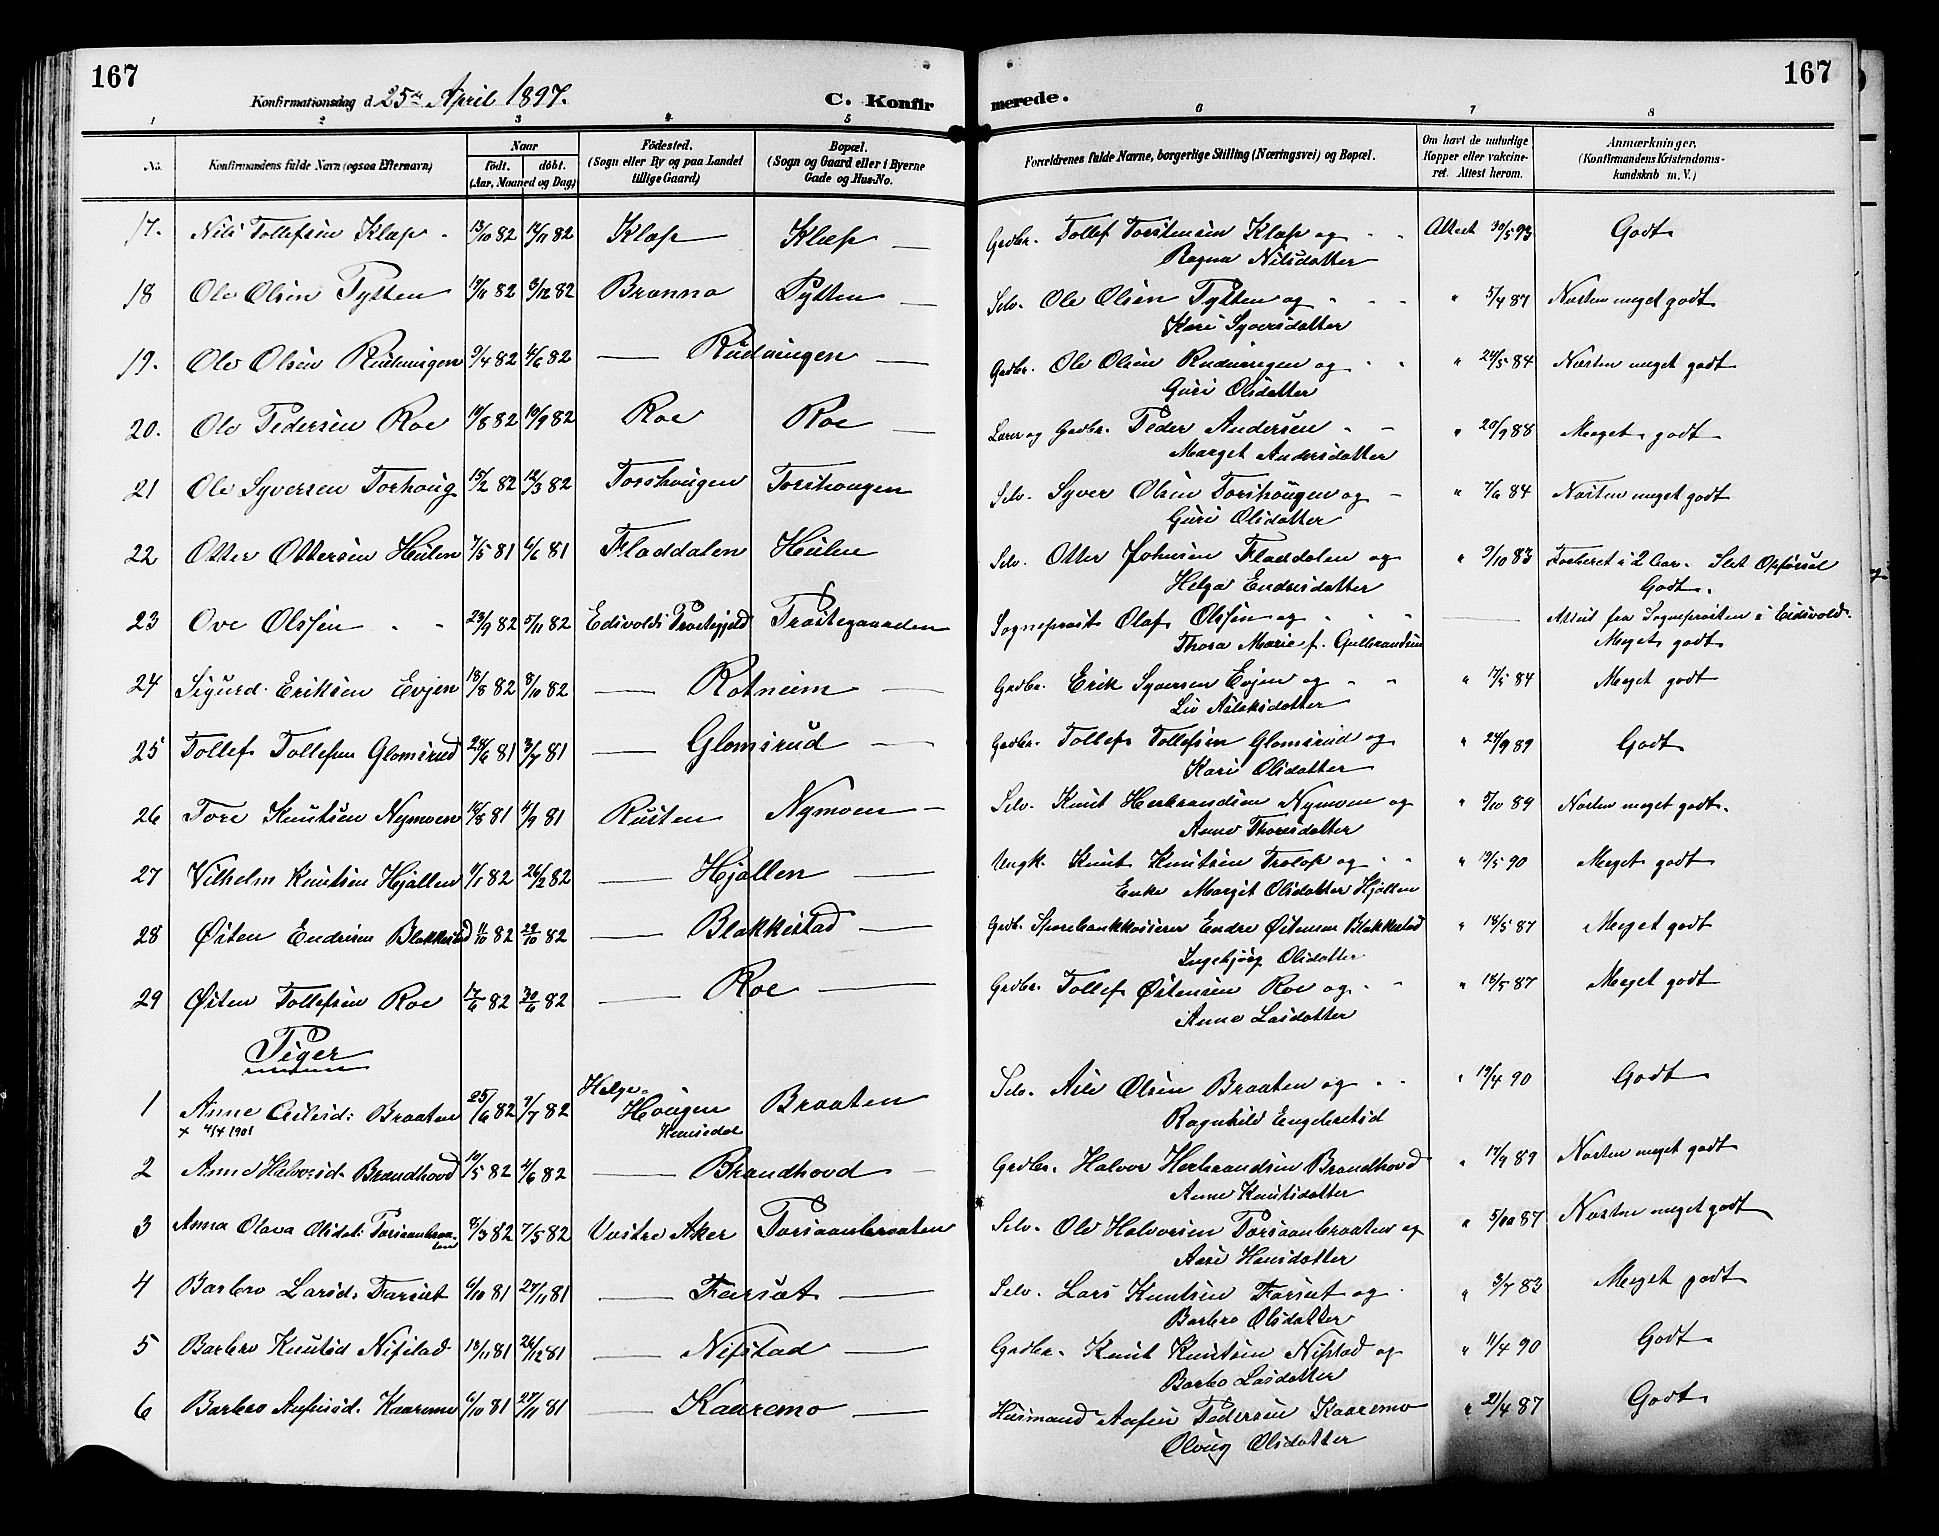 167
Konfirmationsdag d. 25de April 1897.
C. Konfir
merede.
167
1 2 3 4 5 6 7 8
No. Konfirmandens fulde Navn (ogsaa Efternavn) Naar født. døbt. (Aar, Maaned og Dag) Födested. (Sogn eller By og paa Landet tillige Gaard) Bopæl. (Sogn og Gaard eller i Byerne Gade og Hus-No. Forældrenes fulde Navne, borgerlige Stilling (Næringsvei) og Bopæl. Om havt de naturlige Kopper eller vakcineret. Attest herom. Anmærkninger. (Konfirmandens Kristendomskundskab m. V.)
17. Nils Tollefsen Klæp 13/10 82 12/11 82 Klæp Klæp Grdbr. Tollef Torstensen Klæp og Attest 30/5 93 Godt
Ragna Nilsdatter
18 Ole Olsen Tytten 3/12 82 Branno Pytten Selv. Ole Olsen Tytten og " 5/4 87 Næsten meget godt
Kari Syversdatter
19. Ole Olsen Rudningen 9/4 82 4/6 82 Rudningen Grdbr. Ole Olsen Rudningen og " 24/5 84 Næsten meget godt
Guri Olsdatter
20. Ole Pedersen Roe 10/9 82 Roe Roe Lærer og Grdbr. Peder Andersen " 20/9 88 Meget godt
Marget Andersdatter
21 Ole Syversen Torhoug 15/2 82 12/3 82 Torshougen Torshougen Selv. Syver Olsen Torshougen og " 7/6 84 Næsten meget godt
Guri Olsdatter
22 Otter Ottersen Hulen 7/5 81 6/6 81 Fladdalen Hulen Selv. Otter Johnsen Fladdalen og " 9/10 83 Forberet i 2 Aar. Slet Opførsel
Helga Endresdatter Godt.
23 Ove Olssen 23/9 82 5/11 82 Edsvolds Præstegjeld Præstegaarden Sogneprest Olaf Olssen og Attest fra Sogneprosten i Eidsvold.
Thora Marie f. Gulbrandsen Meget godt
24 Sigurd Eriksen Evjen 18/8 82 8/10 82 Rotneim Grdbr. Erik Syversen Evjen og " 17/5 84 Meget godt
Liv Aslaksdatter
25 Tollef Tollefsen Glomsrud 24/6 81 3/7 81 Glomsrud Grdbr. Tollef Tollefsen Glomsrud og " 24/9 89 Godt
Kari Olsdatter
26 Tore Knutsen Nymoen 16/8 81 4/9 81 Rusten Nymoen Selv. Knut Herbrandsen Nymoen og " 5/10 89 Næsten meget godt.
Anne Thoresdatter
27 Vilhelm Knutsen Hjallen 9/1 82 26/2 82 Hjallen Ungk. Knut Knutsen Troløp og " 13/5 90 Meget godt
Enke Margit Olsdatter Hjallen
28 Østen Endresen Blakkestad 11/10 82 29/10 82 Blakkestad Grdb. Sparebankkasserer Endre Østensen Blakkestad " 18/5 87 Meget godt
Ingebjørg Olsdatter
29 Østen Tollefsen Roe 17/6 82 30/6 82 Roe Grdbr. Tollef Østensen Roe og " 18/5 87 Meget godt
Anne Lasdatter
Piger
1 Anne Asilsd: Braaten 25/6 82 9/7 82 Helge Hougen Hemsedal Braaten Selv. Asle Olsen Braaten og " 19/4 90 Godt
+ 4/4 1901 Ragnhild Engebretsd
2 Anne Halvorsd. Brandhovd 19/5 82 4/6 82 Brandhovd Grdbr. Halvor Herbrandsen Brandhovd " 14/9 89 Næsten meget godt
Anne Knutsdatter
3 Anna Olava Olsdat: Torsaanbraaten 8/3 82 7/5 82 Vestre Aker Torsaanbraaten Selv. Ole Halvorsen Torsaanbraaten og " 5/10 87 Næsten meget godt
Aase Hansdatter
4 Barbro Larsd: Farsæt 6/10 81 27/11 81 Farsæt Selv. Lars Knutsen Farsæt og " 3/7 82 Meget godt
Barbro Olsdatter
5 Barbro Knutsd Nifstad 19/11 81 26/12 81 Nifstad Grdbr. Knut Knutsen Nifstad og " 11/4 90 Godt
Barbo Lasdatter
6 Barbro Anfinsd. Kaaremo 6/10 81 27/11 81 Kaaremo Husmand Anfin Pedersen Kaaremo " 21/4 87 Godt
Olaug Olsdatter